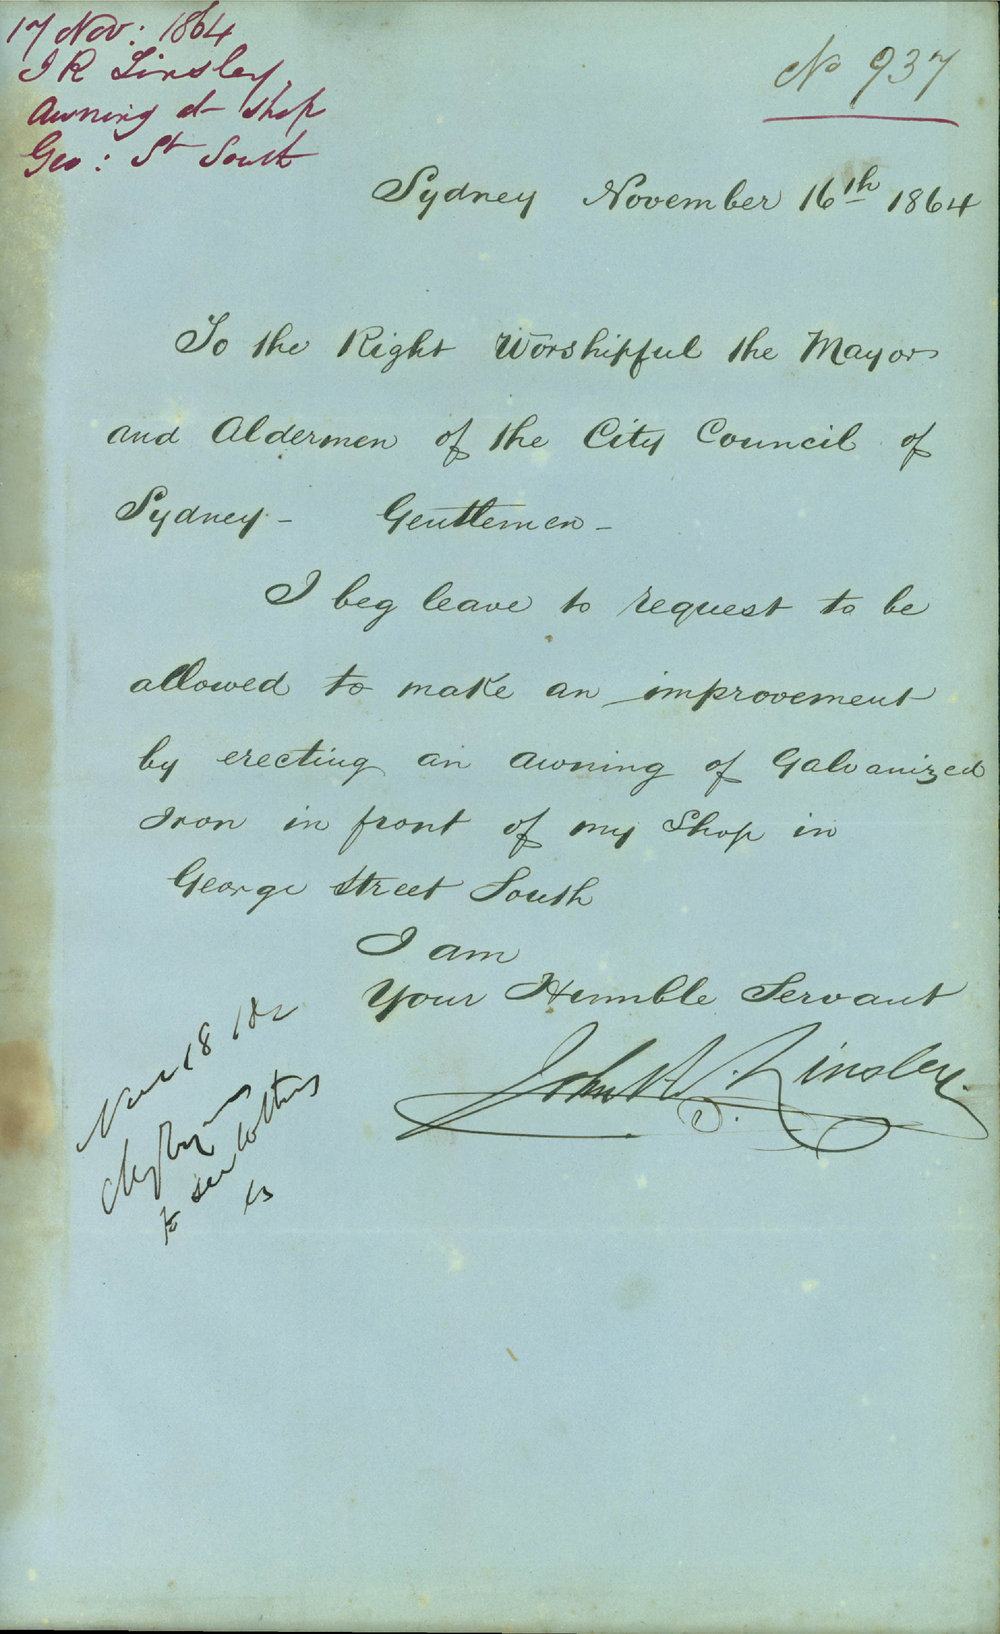 17 Nov: 1864
J R Linsley
Awning at Shop
Geo: St South
No 937
Sydney November 16th 1864
To the Right Worshipful the Mayor
and Aldermen of the City Council of
Sydney - Gentlemen -
I beg leave to request to be
allowed to make an improvement
by erecting an awning of Galvanized
Iron in front of my Shop in
George Street South
I am
Your Humble Servant
John R. Linsley.
18
to see